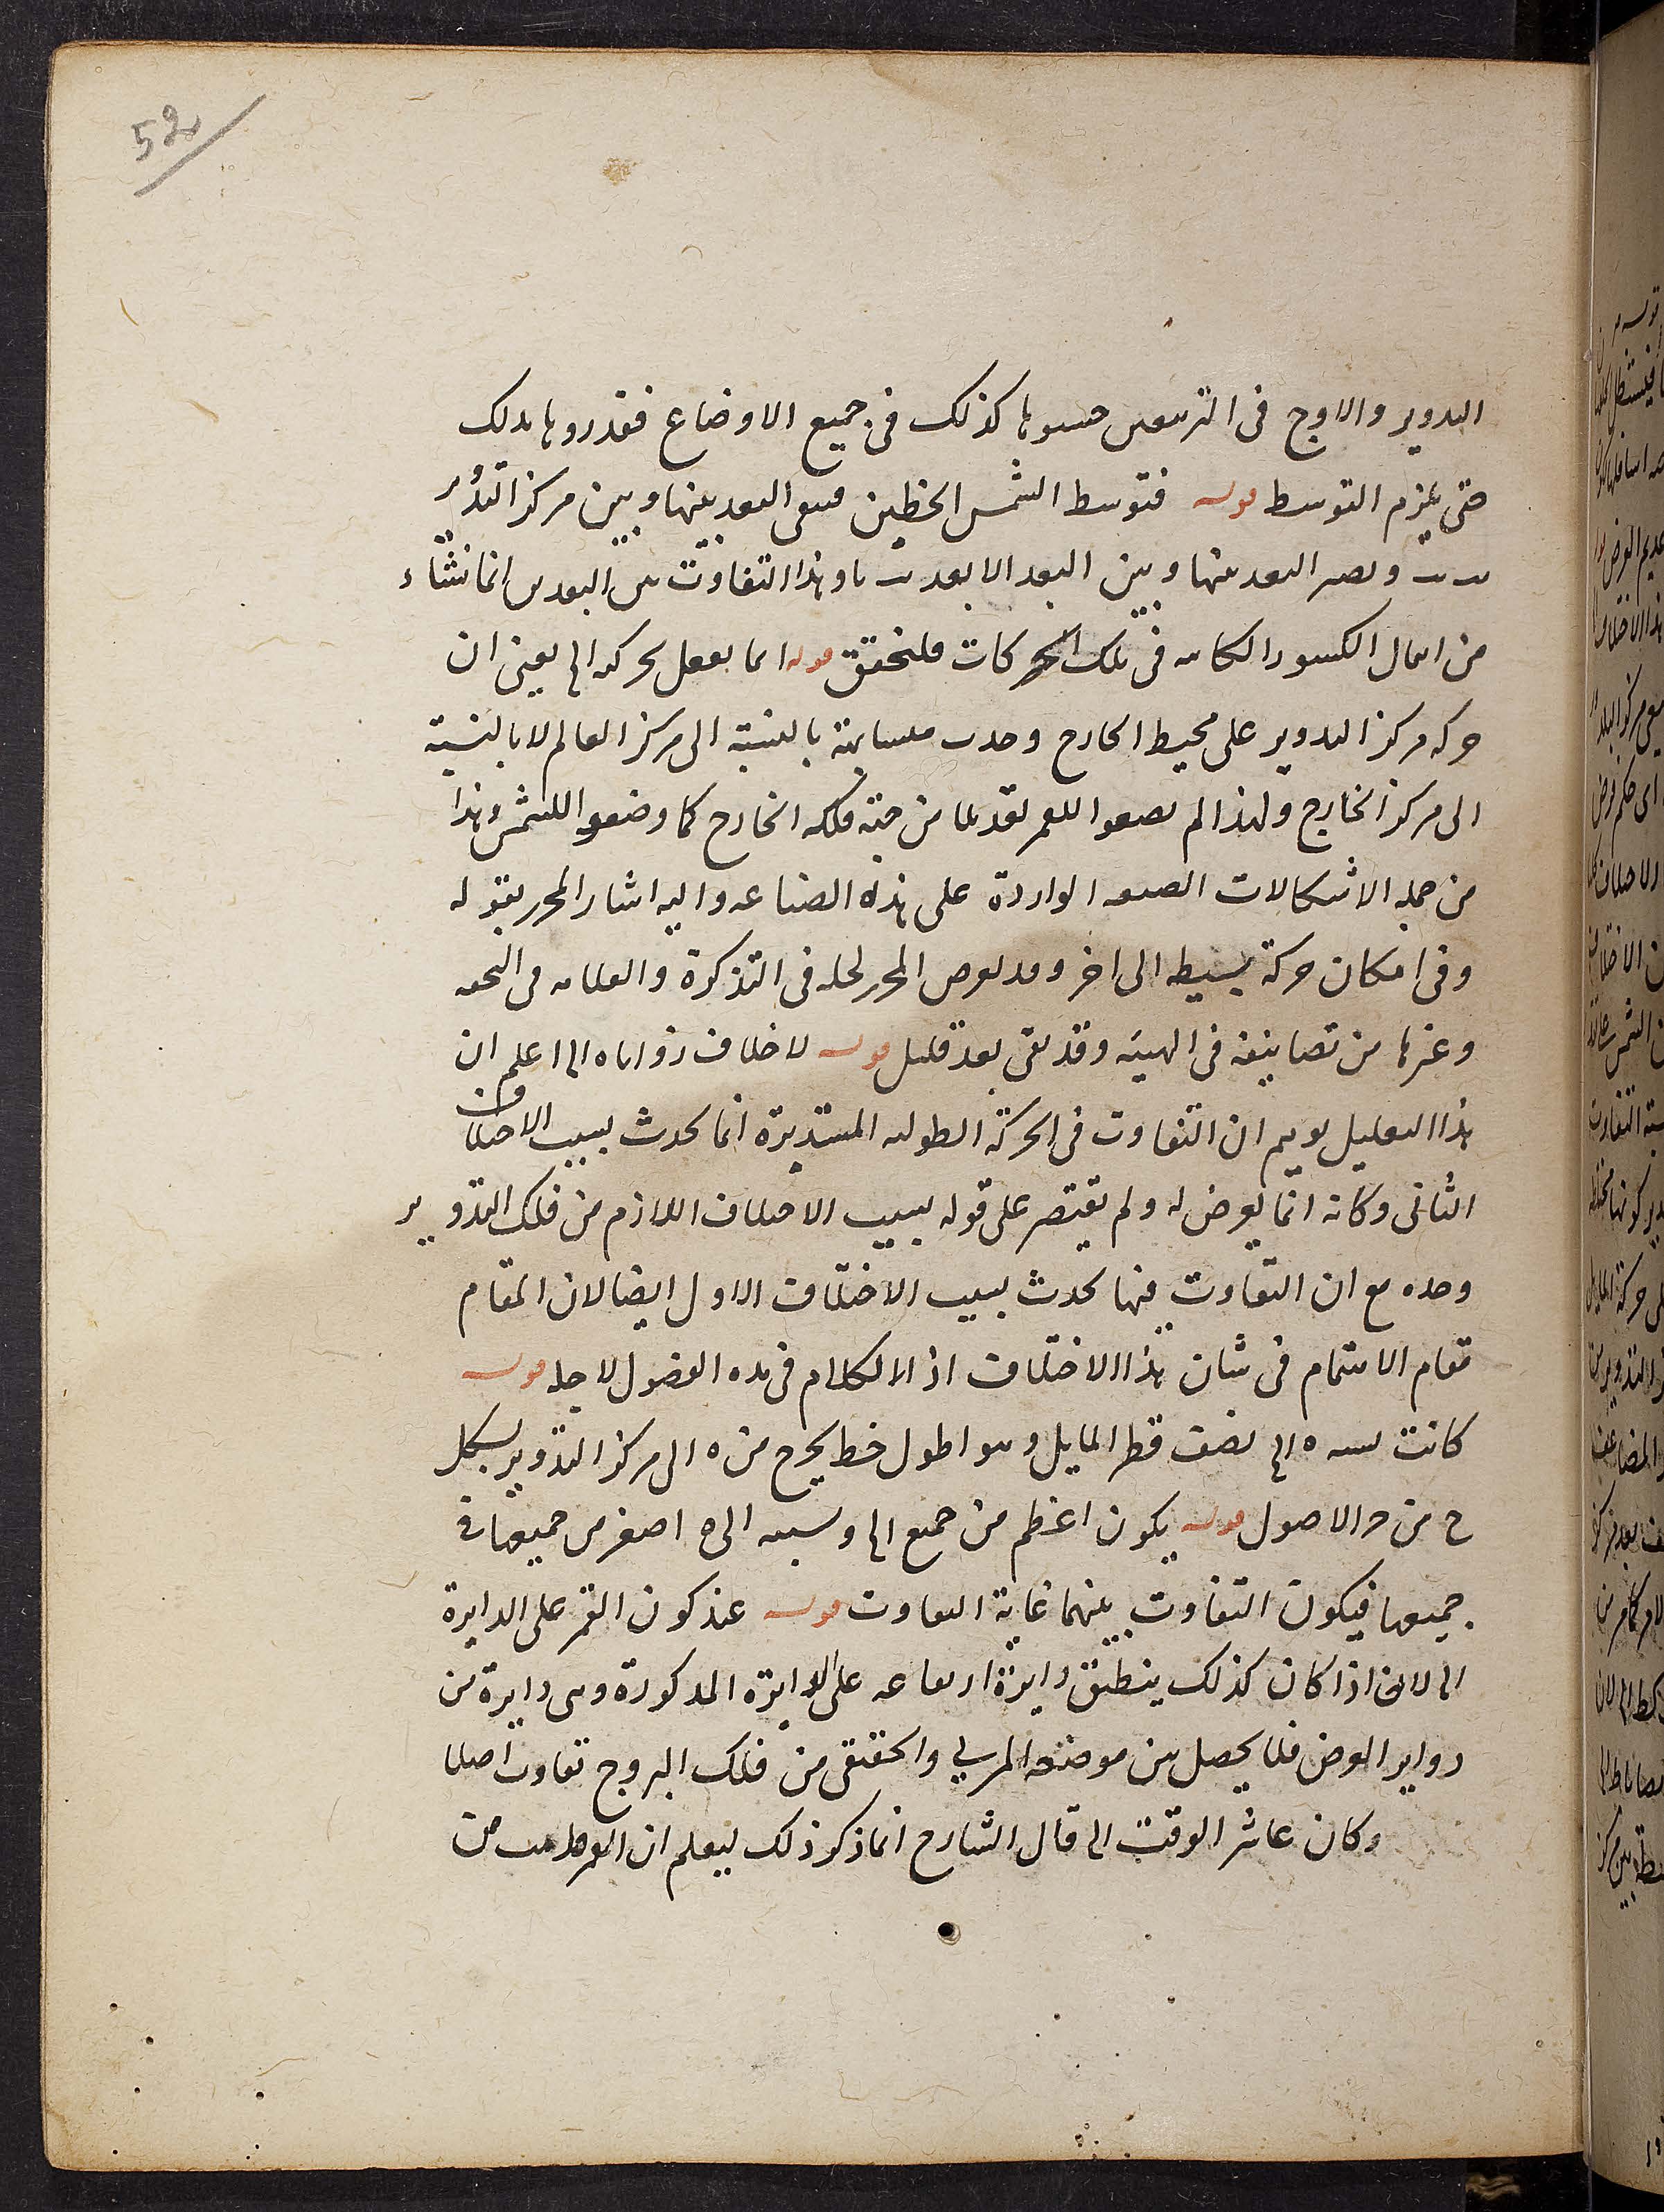 52
التدوير والاوج فى التربيعين حسبوها كذلك فى جميع الاوضاع فقدروها بذلك
حتى يلزم التوسط قوله فتوسط الشمس الخطين فيبقى البعد بينها وبين مركز التدوير
ويصير البعد بينها وبين البعد الابعد وهذا التفاوت بين البعدين انما نشاء
من اهمال الكسور الكائنة فى تلك الحركات فليتحقق قوله انما يفعل بحركته الى يعنى ان
حركة مركز التدوير على محيط الخارج وجدت متشابهة بالنسبة الى مركز العالم لا بالنسبة
الى مركز الخارج ولهذا لم يضعوا للقمر تعديلا من جهة فلكه الخارج كما وضعوا للشمس وهذا
من جملة الاشكالات الصعبة الواردة على هذه الصناعة واليه اشار المحرر بقوله
وفى امكان حركة بسيطة الى اخر وقد تعرض المحرر لحله فى التذكرة والعلامة فى التحفة
وغيرها من تصانيفه فى الهيئة وقد بقى بعد قليل قوله لاختلاف زواياه الى اعلم ان
هذا التعليل يوهم ان التفاوت فى الحركة الطولية المستديرة انما يحدث بسبب الاختلاف
الثانى وكانه انما يعرض له ولم يقتصر على قوله بسبب الاختلاف اللازم من فلك التدوير
وحده مع ان التفاوت فيها يحدث بسبب الاختلاف الاول ايضا لان المقام
مقام الاهتمام فى شان هذا الاختلاف اذ الكلام فى هذه الفصول لاجله قوله
كانت نسبة ه الى نصف قطر المايل وهو اطول خط يخرج من ه الى مركز التدوير بشكل
ح من ح الاصول قوله يكون اعظم من جميع الى ونسبة الى ه اصغر من جميعها فى
جميعها فيكون التفاوت بينهما غاية التفاوت قوله عند كون القمر على الدايرة
الى لانه اذا كان كذلك ينطبق دايرة ارتفاعه على الدايرة المذكورة وهى دايرة من
دواير العرض فلا يحصل بين موضعه المرئى والحقيقى من فلك البروج تفاوت اصلا
وكان عاشر الوقت الى قال الشارح انما ذكر ذلك ليعلم ان القمر من